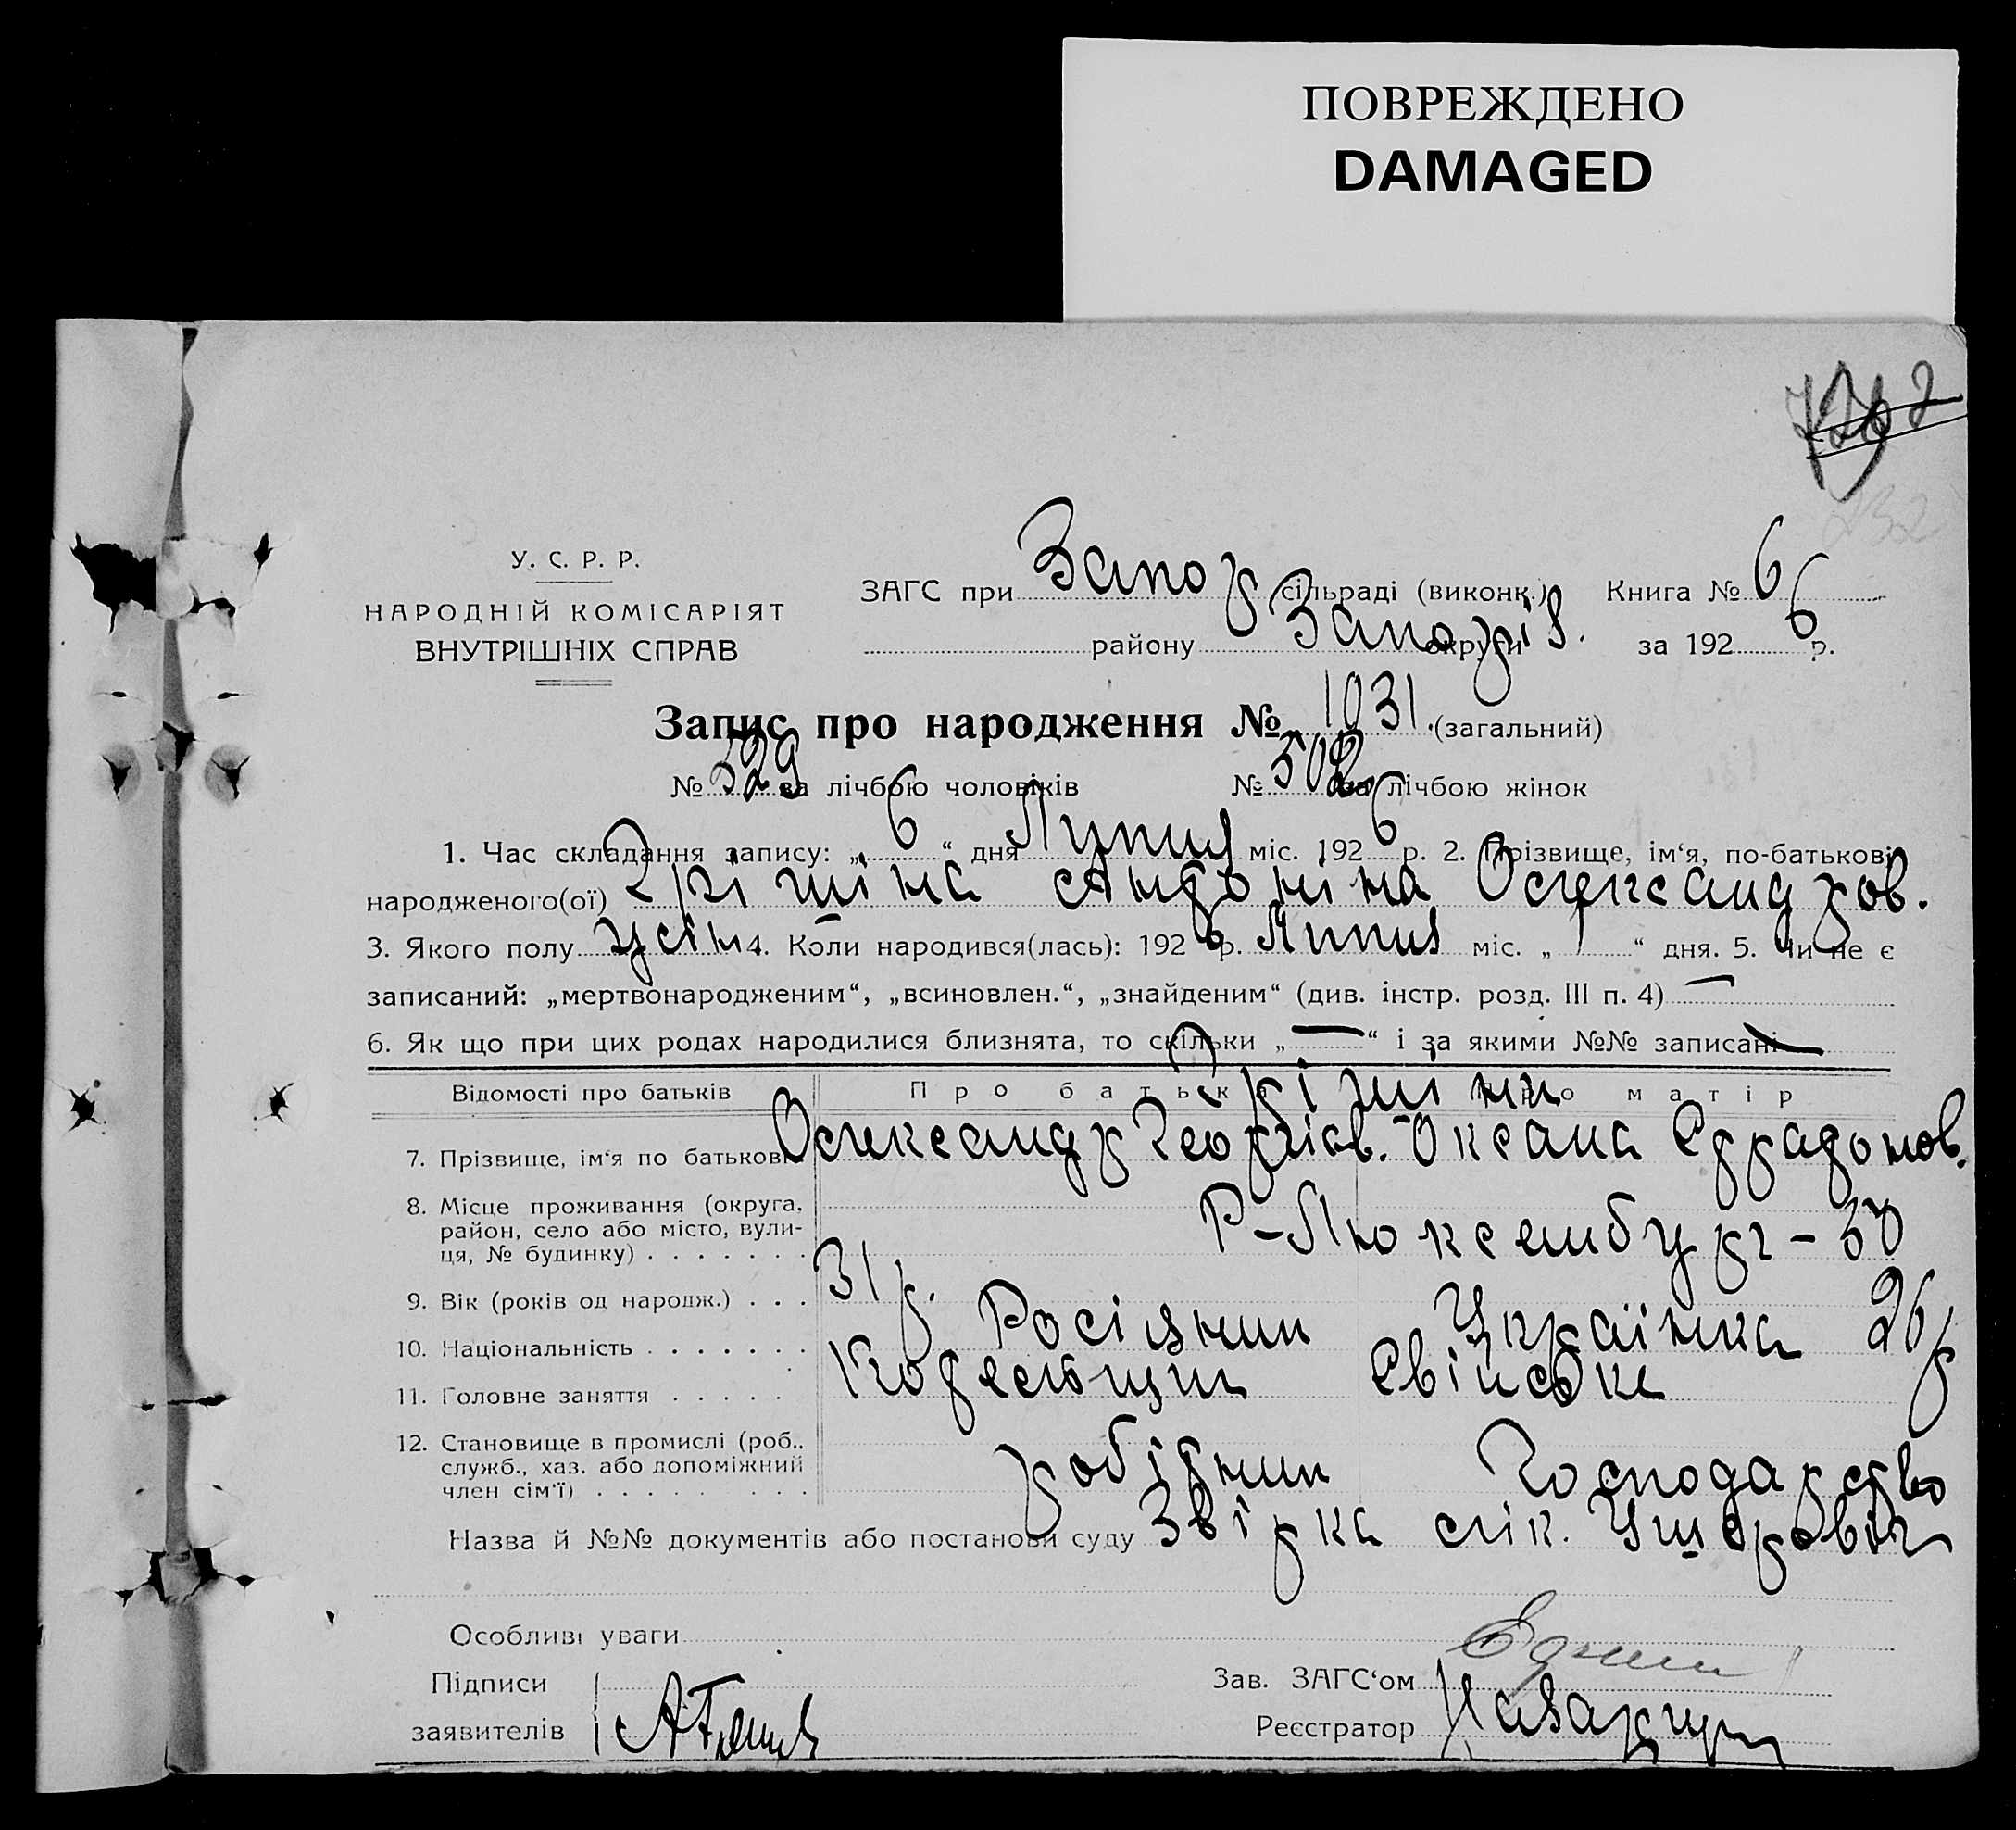 ПОВРЕЖДЕНО
DAMAGED
У. С. Р. Р.
НАРОДНІЙ КОМІСАРІЯТ
ВНУТРІШНІХ СПРАВ
ЗАГС при Запор сільраді (виконк.) Книга № 6
району Запоріз. округи за 1926 р.
Запис про народження № 1031 (загальний)
№ 529 за лічбою чоловіків № 502 за лічбою жінок
1. Час складання запису: „6“ дня Липня міс. 1926 р. 2. Прізвище, ім‘я, по-батькові
народженого(ої) Грішіна Антоніна Олександров.
3. Якого полу 4. Коли народився(лась): 1926 р. Липня міс. „1“ дня. 5. Чи не є
записаний: „мертвонародженим“, „всиновлен.“, „знайденим“ (див. інстр. розд. III п. 4) —
6. Як що при цих родах народилися близнята, то скільки „—“ і за якими №№ записані —
Відомості про батьків Про батька Про матір
Грішини
7. Прізвище, ім‘я по батькові Олександр Георгієв. - Оксана
8. Місце проживання (округа, район, село або місто, вулиця, № будинку) Р-Люксембург - 30
9. Вік (років од народж.) 31 р. 26 р
10. Національність Росіянин Українка
11. Головне заняття
12. Становище в промислі (роб., служб., хаз. або допоміжний член сім‘ї) робітник Господарство
Назва й №№ документів або постанови суду Звірка лік.
Особливі уваги
Підписи
заявителів
Зав. ЗАГС‘ом
Реєстратор